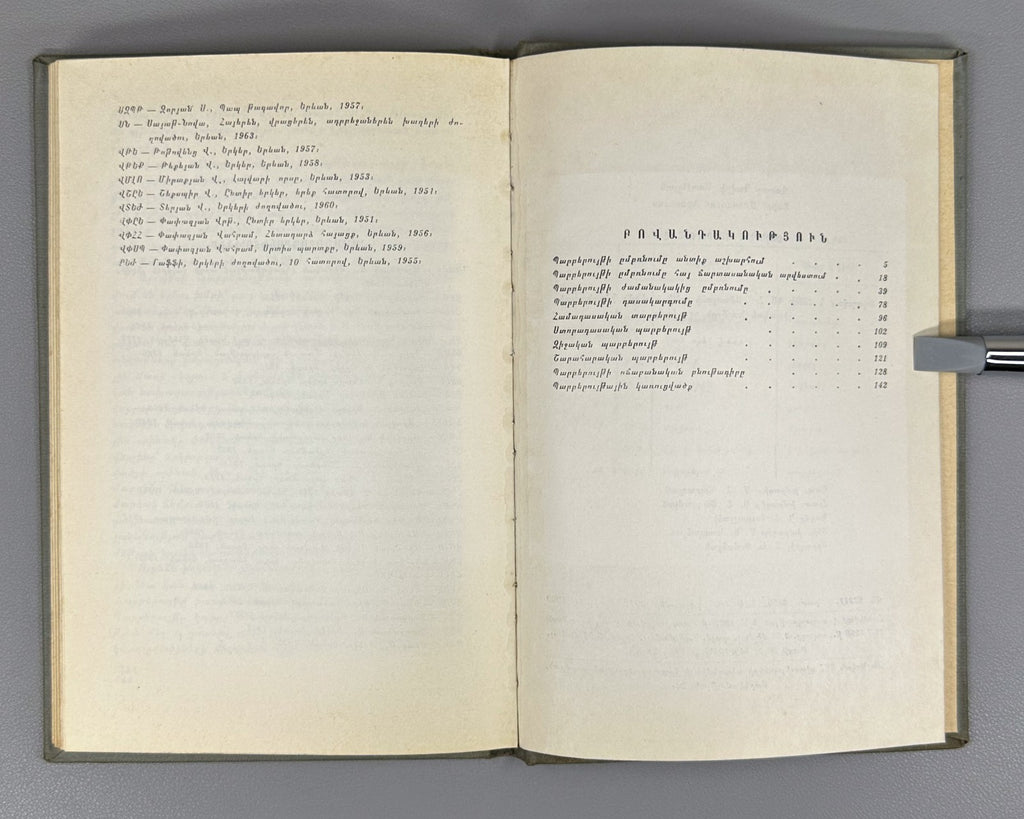 ՍԶՊԹ — Զորյան Ս., Պապ թագավոր, Երևան, 1957։
ՍՆ — Սայաթ-Նովա, Հայերեն, վրացերեն, ադրբեջաներեն խաղերի ժո-
ղովածու, Երևան, 1963։
ՎԹԵ — Թոթովենց Վ., Երկեր, Երևան, 1957։
ՎԹԵՔ — Թեքեյան Վ., Երկեր, Երևան, 1958։
ՎՄԼՈ — Միրաքյան Վ., Լալվարի որսը, Երևան, 1953։
ՎՇԸԵ — Շեքսպիր Վ., Ընտիր երկեր, երեք հատորով, Երևան, 1951։
ՎՏԵԺ — Տերյան Վ., Երկերի ժողովածու, 1960։
ՎՓԸԵ — Փափազյան Վրթ., Ընտիր երկեր, Երևան, 1951։
ՎՓՀՀ — Փափազյան Վահրամ, Հետադարձ հայացք, Երևան, 1956։
ՎՓՍՊ — Փափազյան Վահրամ, Սրտիս պարտքը, Երևան, 1959։
ԲԵԺ — Րաֆֆի, Երկերի ժողովածու, 10 հատորով, Երևան, 1955։
ԲՈՎԱՆԴԱԿՈՒԹՅՈՒՆ
Պարբերույթի ըմբռնումը անտիկ աշխարհում . . . . 5
Պարբերույթի ըմբռնումը հայ ճարտասանական արվեստում . . 18
Պարբերույթի ժամանակակից ըմբռնումը . . . . . 39
Պարբերույթի դասակարգումը . . . . . 78
Համադասական պարբերույթ . . . . . . 96
Ստորադասական պարբերույթ . . . . . 102
Զիջական պարբերույթ . . . . . . 109
Շարահարական պարբերույթ . . . . . . 121
Պարբերույթի ոճաբանական բնութագիրը . . . . 128
Պարբերույթային կառուցվածք . . . . . . 142